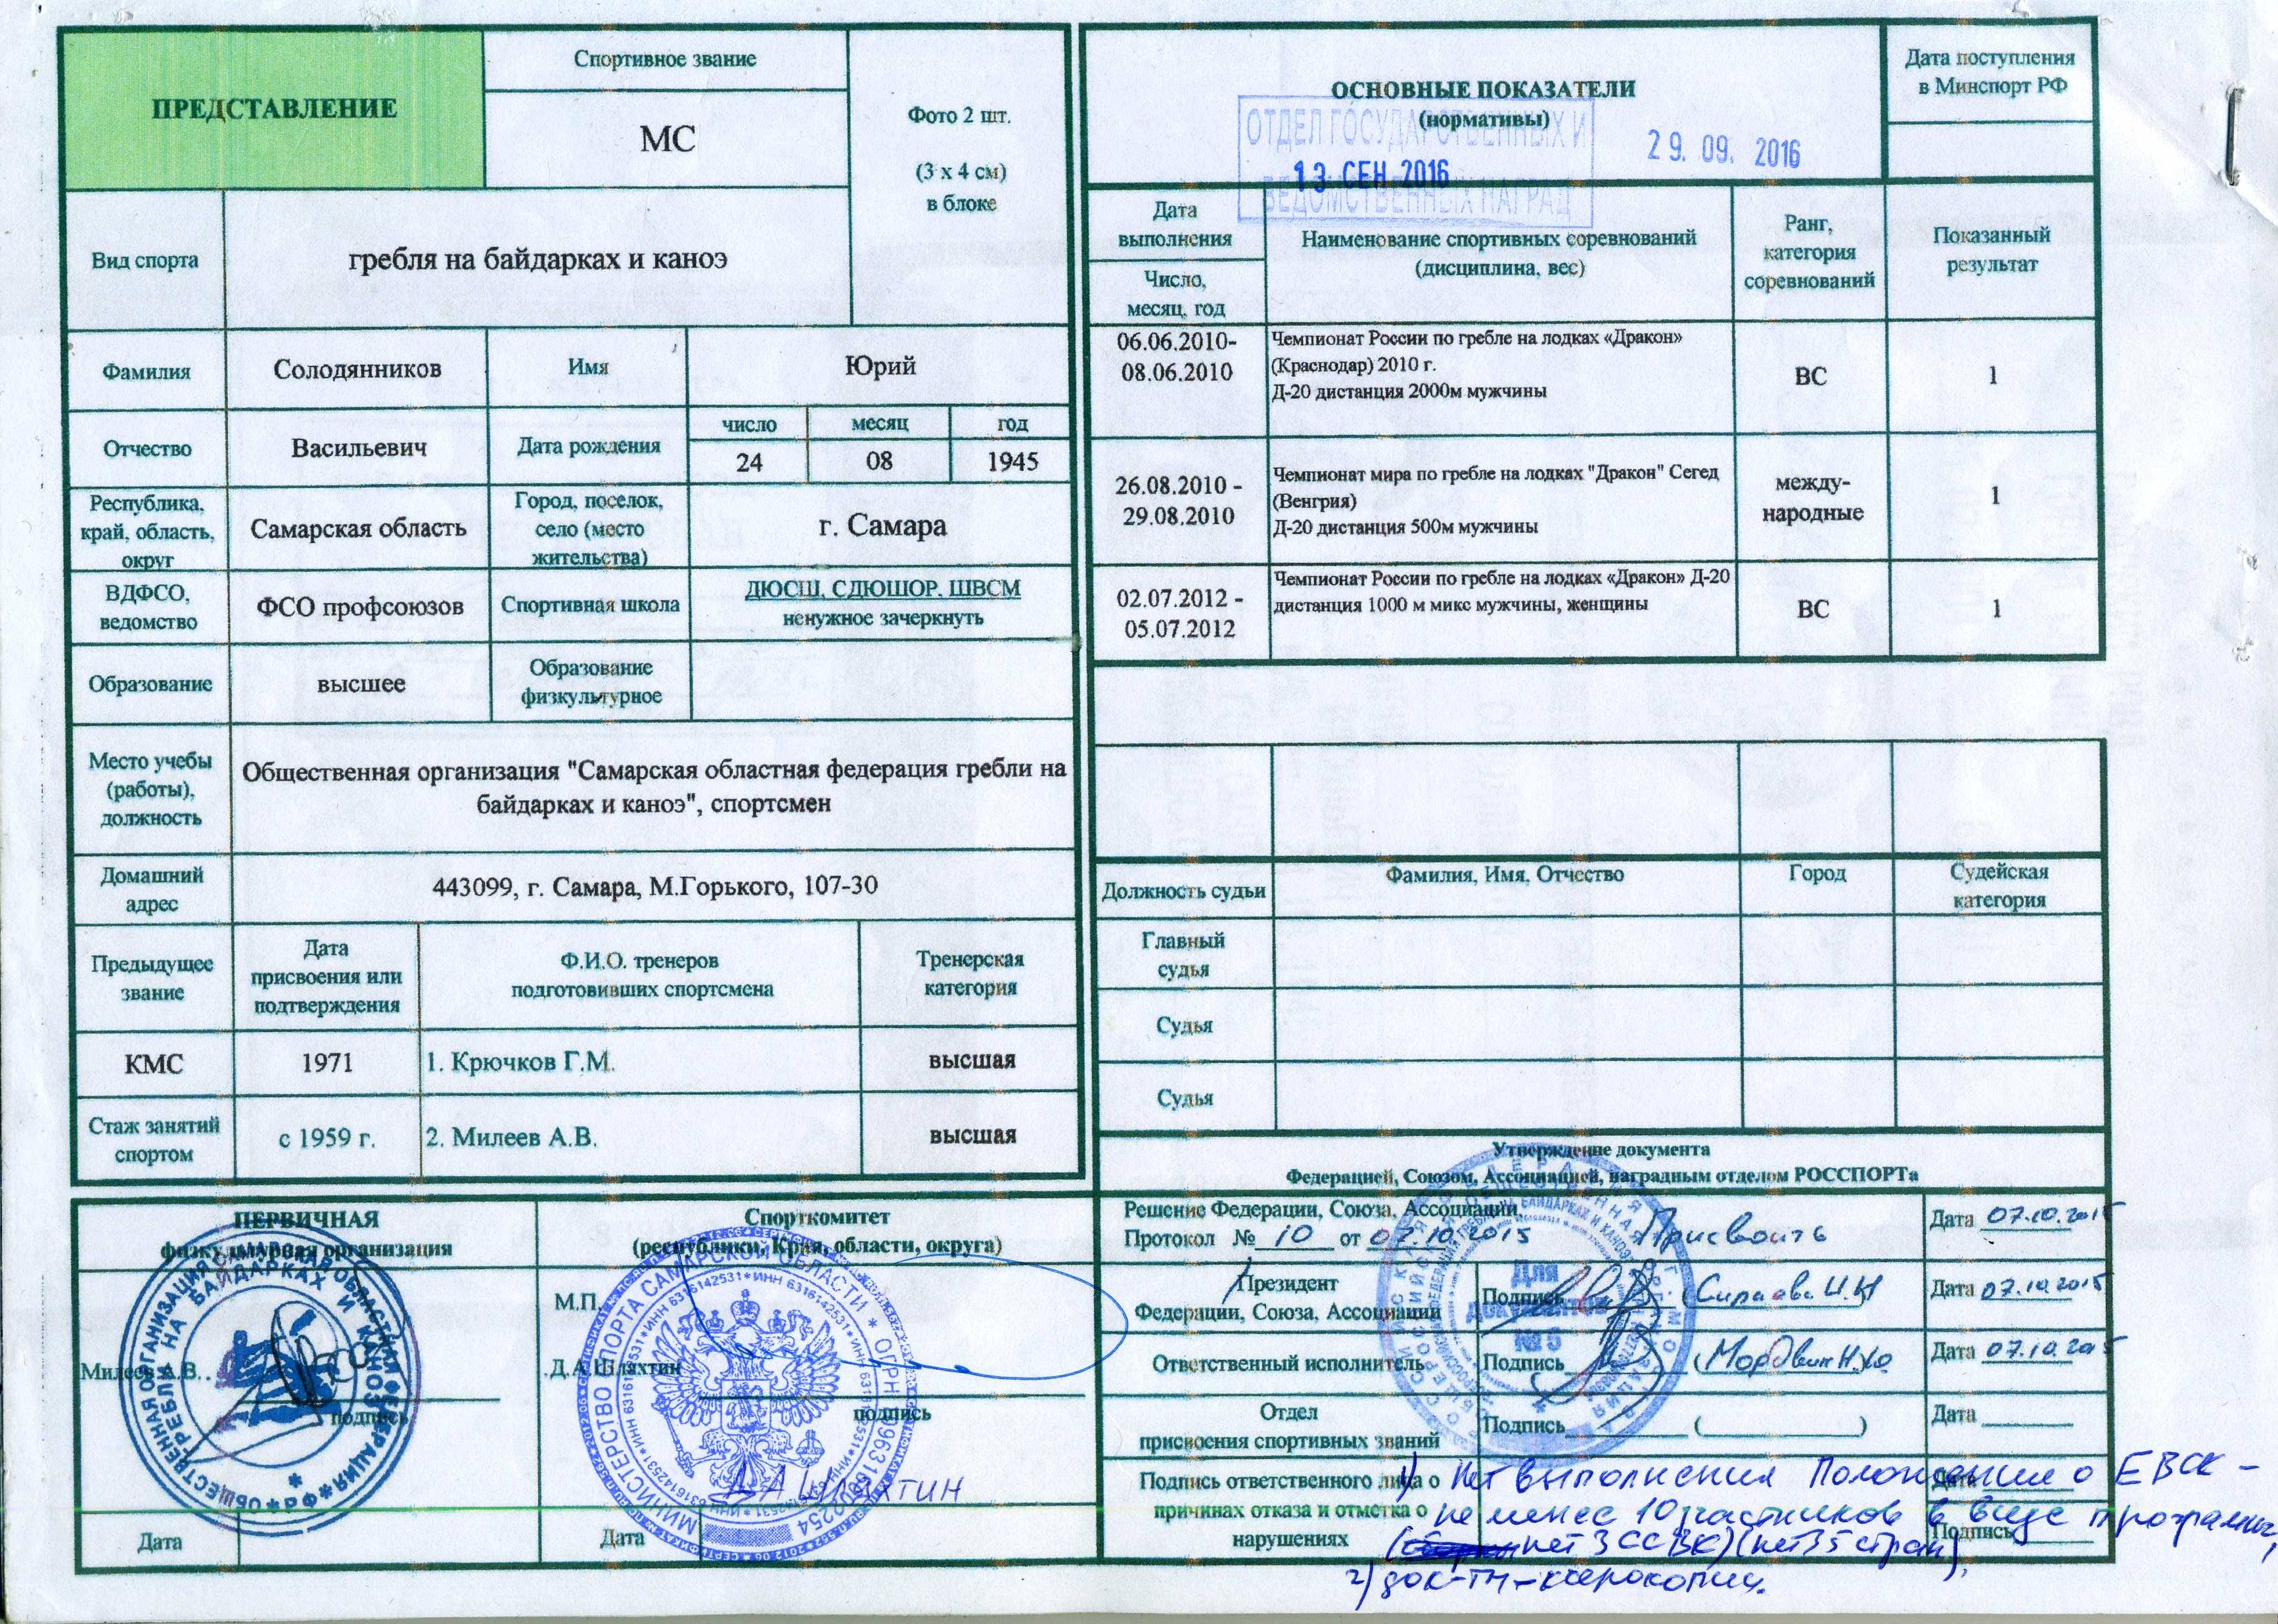 ПРЕДСТАВЛЕНИЕ
Спортивное звание
МС
Фото 2 шт.
(3 х 4 см)
в блоке
Вид спорта
гребля на байдарках и каноэ
Фамилия
Солодянников
Имя
Юрий
Отчество
Васильевич
Дата рождения
число
месяц
год
24
08
1945
Республика,
край, область,
округ
Самарская область
Город, поселок,
село (место
жительства)
г. Самара
ВДФСО,
ведомство
ФСО профсоюзов
Спортивная школа
ДЮСШ, СДЮШОР, ШВСМ
ненужное зачеркнуть
Образование
высшее
Образование
физкультурное
Место учебы
(работы),
должность
Общественная организация "Самарская областная федерация гребли на
байдарках и каноэ", спортсмен
Домашний
адрес
443099, г. Самара, М.Горького, 107-30
Предыдущее
звание
Дата
присвоения или
подтверждения
Ф.И.О. тренеров
подготовивших спортсмена
Тренерская
категория
КМС
1971
1. Крючков Г.М.
высшая
Стаж занятий
спортом
с 1959 г.
2. Милеев А.В.
высшая
ПЕРВИЧНАЯ
физкультурная организация
Милеев А.В.
подпись
Дата
Спорткомитет
(республики, Края, области, округа)
М.П.
Д.А.Шляхтин
подпись
Д.А Шляхтин
Дата
МИНИСТЕРСТВО СПОРТА САМАРСКОЙ ОБЛАСТИ
ИНН 6316142531
ОСНОВНЫЕ ПОКАЗАТЕЛИ
(нормативы)
ОТДЕЛ ГОСУДАРСТВЕННЫХ И
13 СЕН 2016
ВЕДОМСТВЕННЫХ НАГРАД
29. 09. 2016
Дата поступления
в Минспорт РФ
Дата
выполнения
Число,
месяц, год
Наименование спортивных соревнований
(дисциплина, вес)
Ранг,
категория
соревнований
Показанный
результат
06.06.2010-
08.06.2010
Чемпионат России по гребле на лодках «Дракон»
(Краснодар) 2010 г.
Д-20 дистанция 2000м мужчины
ВС
1
26.08.2010 -
29.08.2010
Чемпионат мира по гребле на лодках "Дракон" Сегед
(Венгрия)
Д-20 дистанция 500м мужчины
между-
народные
1
02.07.2012 -
05.07.2012
Чемпионат России по гребле на лодках «Дракон» Д-20
дистанция 1000 м микс мужчины, женщины
ВС
1
Должность судьи
Фамилия, Имя, Отчество
Город
Судейская
категория
Главный
судья
Судья
Судья
Утверждение документа
Федерацией, Союзом, Ассоциацией, наградным отделом РОССПОРТа
Решение Федерации, Союза, Ассоциации,
Протокол № 10 от 07.10.2015 Присвоить
Дата 07.10.2015
Президент
Федерации, Союза, Ассоциации
Подпись
Дата 07.10.2015
Для
документов
№ 5
Ответственный исполнитель
Подпись (Мордвин Н.Ю
Дата 07.10.2015
Отдел
присвоения спортивных званий
Подпись ( )
Дата
Подпись ответственного лица о
причинах отказа и отметка о
нарушениях
Дата
Подпись
1) Нет выполнения Положения о ЕВСК -
не менее 10 участников в виде программы,
нет 3 ССВК) (нет 35 стран),
2) док-ты - ксерокопии.